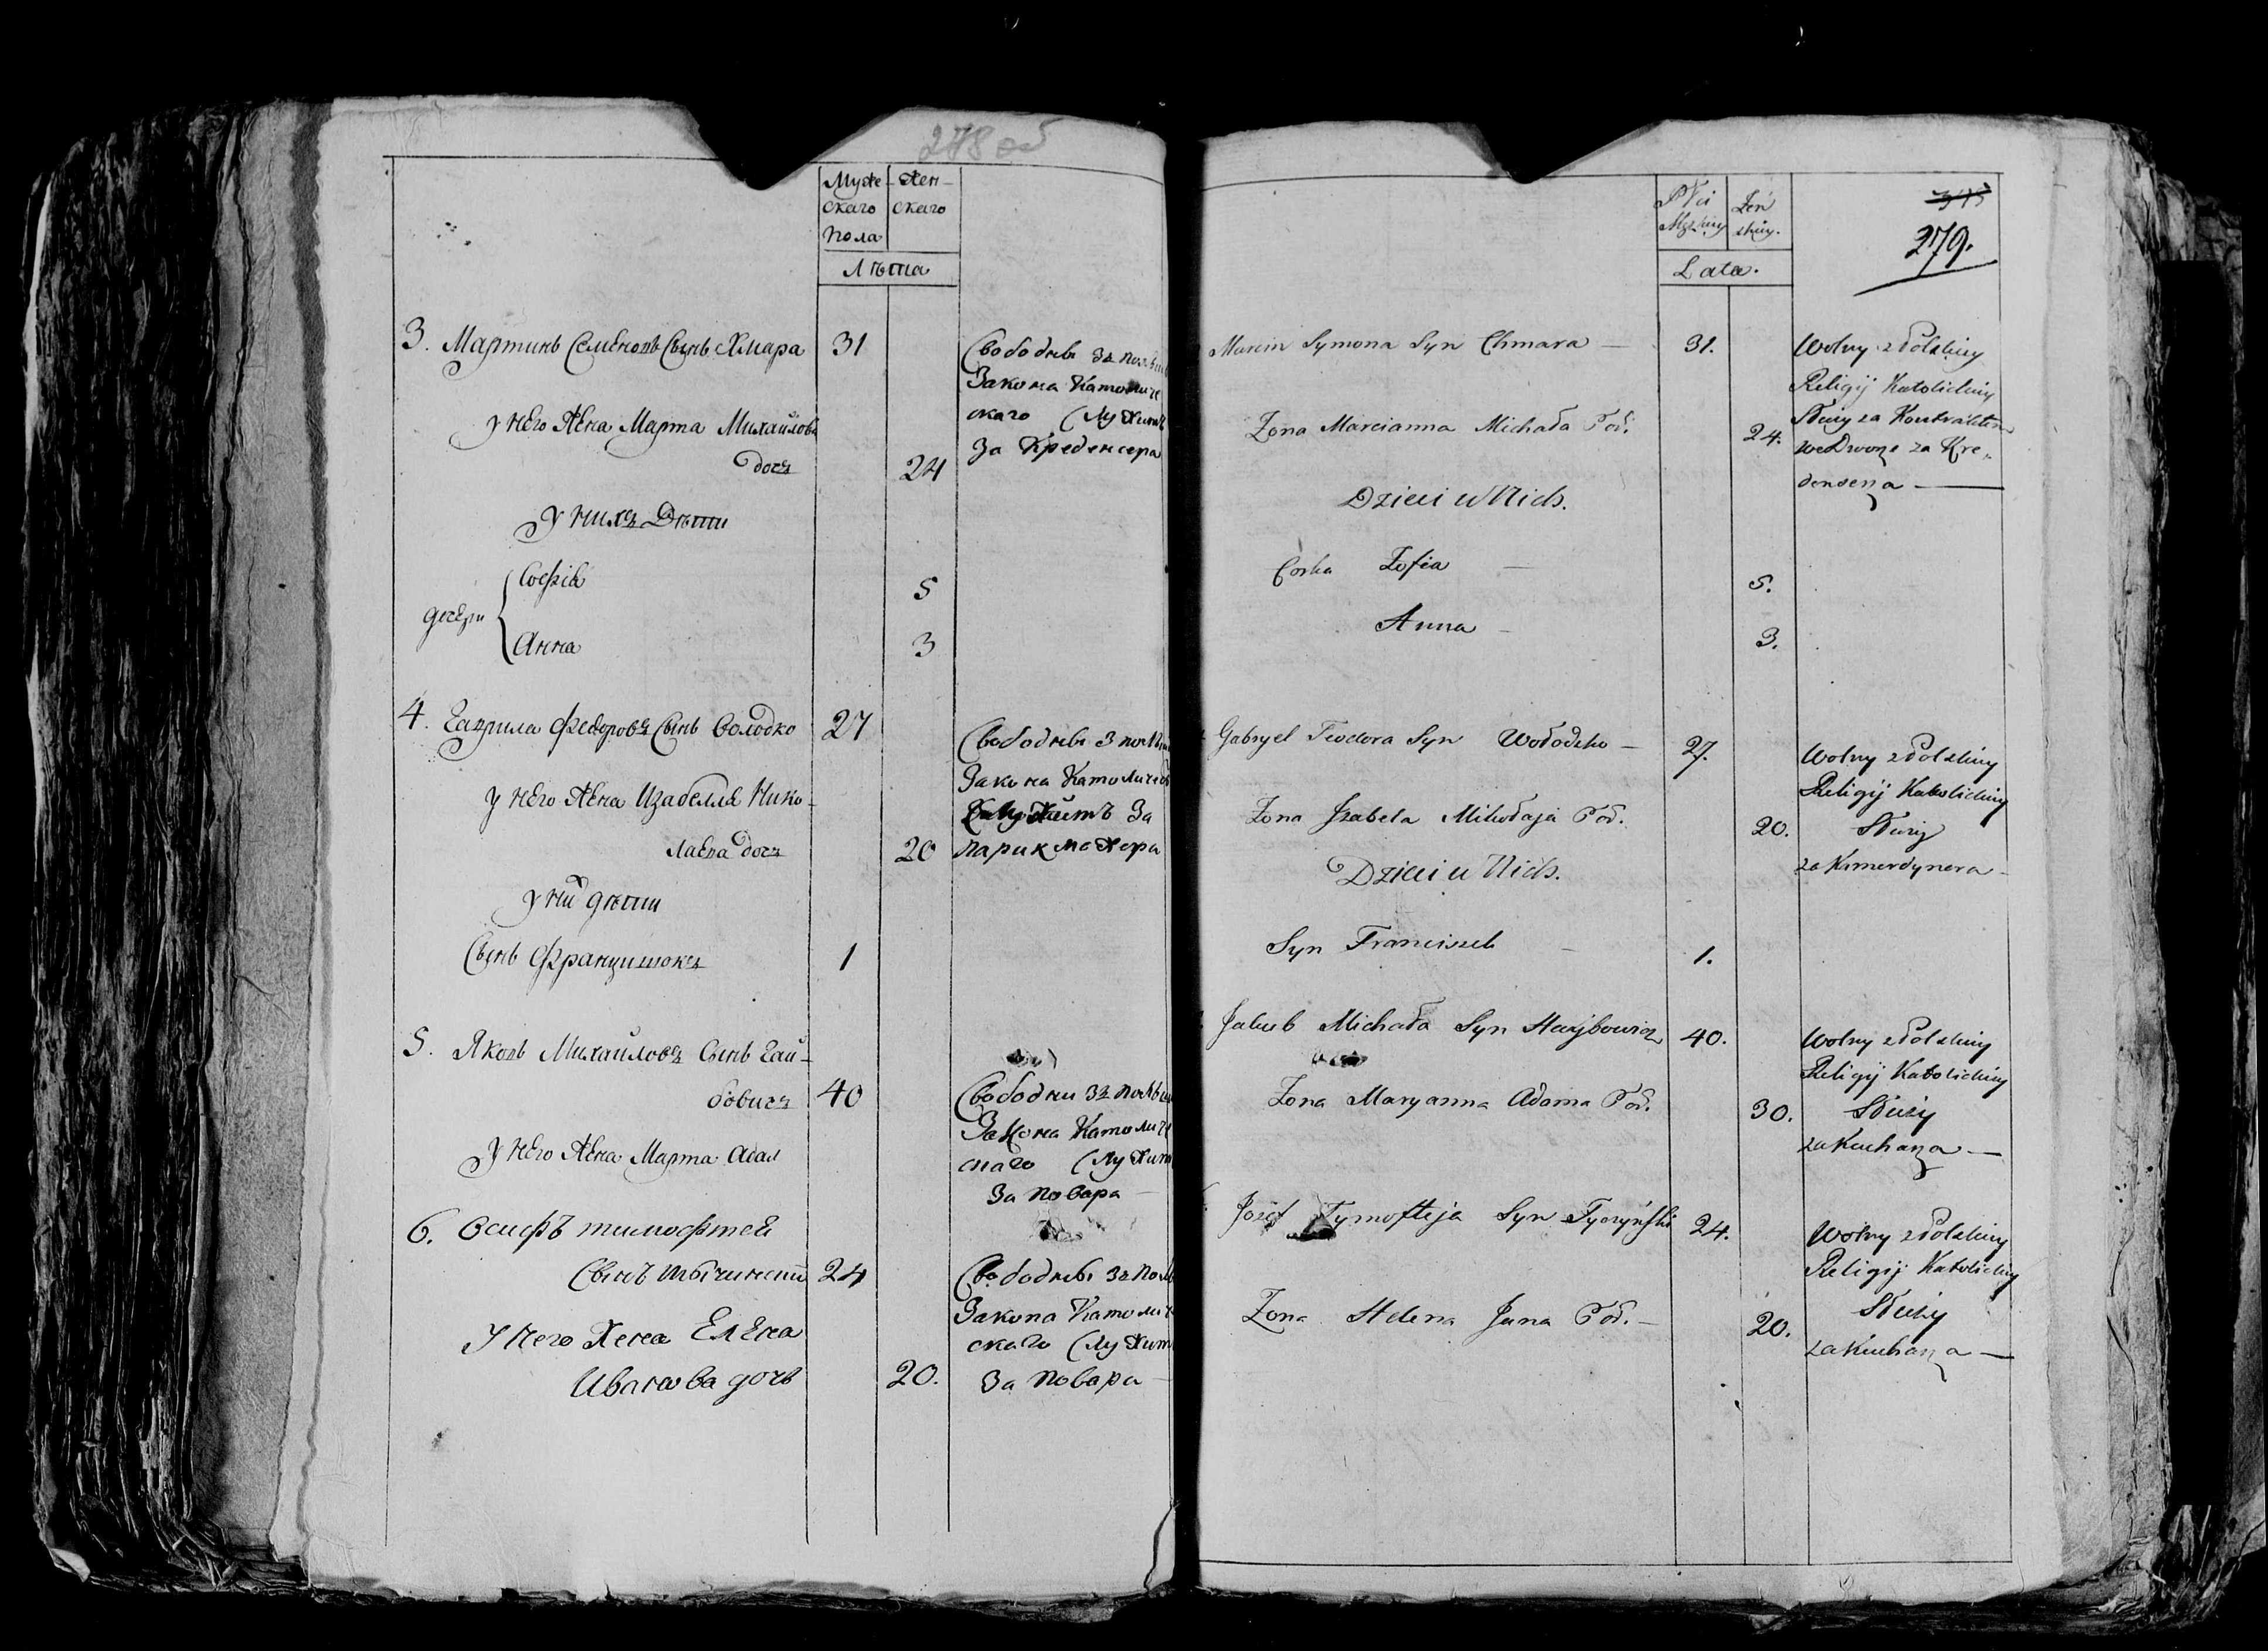 278 об
Муже-
скаго
пола
Жен-
скаго
Лѣта
3. Мартинъ Семеновъ Сынъ Хмара 31
Свободны зъ
Закона Католиче
скаго Служитъ
За Креденсера
у него жена Марта Михайлова
дочъ 24
у нихъ Дѣти
дочери
Софія 5
Анна 3
4. Гаврила Федоровъ Сынъ Володко 27
Свободны З
Закона Католическ
Служитъ За
парикмахера
у него жена Изабелля Нико-
лаева дочъ 20
у них дѣти
Сынъ Францишокъ 1
5. Яковъ Михайловъ Сынъ Гай-
бовичъ 40
Свободны Зъ
Закона Католиче
скаго Служит
За повара
у него жена Марта Адам
6. Осифъ тимофтей
Сынъ тычинский 24
Свободны Зъ
Закона Католиче
скаго Служит
За повара
У него жена Елена
Иванова дочъ 20.
Płci
Męskiey
Żeń
skiey.
Lata.
279.
Marcin Symona Syn Chmara — 31.
Wolny z Polskiey
Religij Katolickiey
Służy za Kontraktem
we Dworze za Kre„
denserza —
Zona Marcianna Michała Cod. 24.
Dzieci u Nich.
Corka Zofia — 5.
Anna — 3.
Gabryel Teodora Syn Wołodzko — 27.
Wolny z Polskiey
Religij Katolickiey
Służy
za Kamerdynera —
Zona Izabela Mikołaja Cod. 20.
Dzieci u Nich.
Syn Franciszek — 1.
Jakub Michała Syn Haybowicz 40.
Wolny z Polskiey
Religij Katolickiey
Służy
za Kucharza —
Zona Maryanna Adama Cod. 30.
Józef Tymofteja Syn Tyczyński 24.
Wolny z Polskiey
Religij Katolickiey
Służy
za Kucharza —
Zona Helena Jana Cod. — 20.